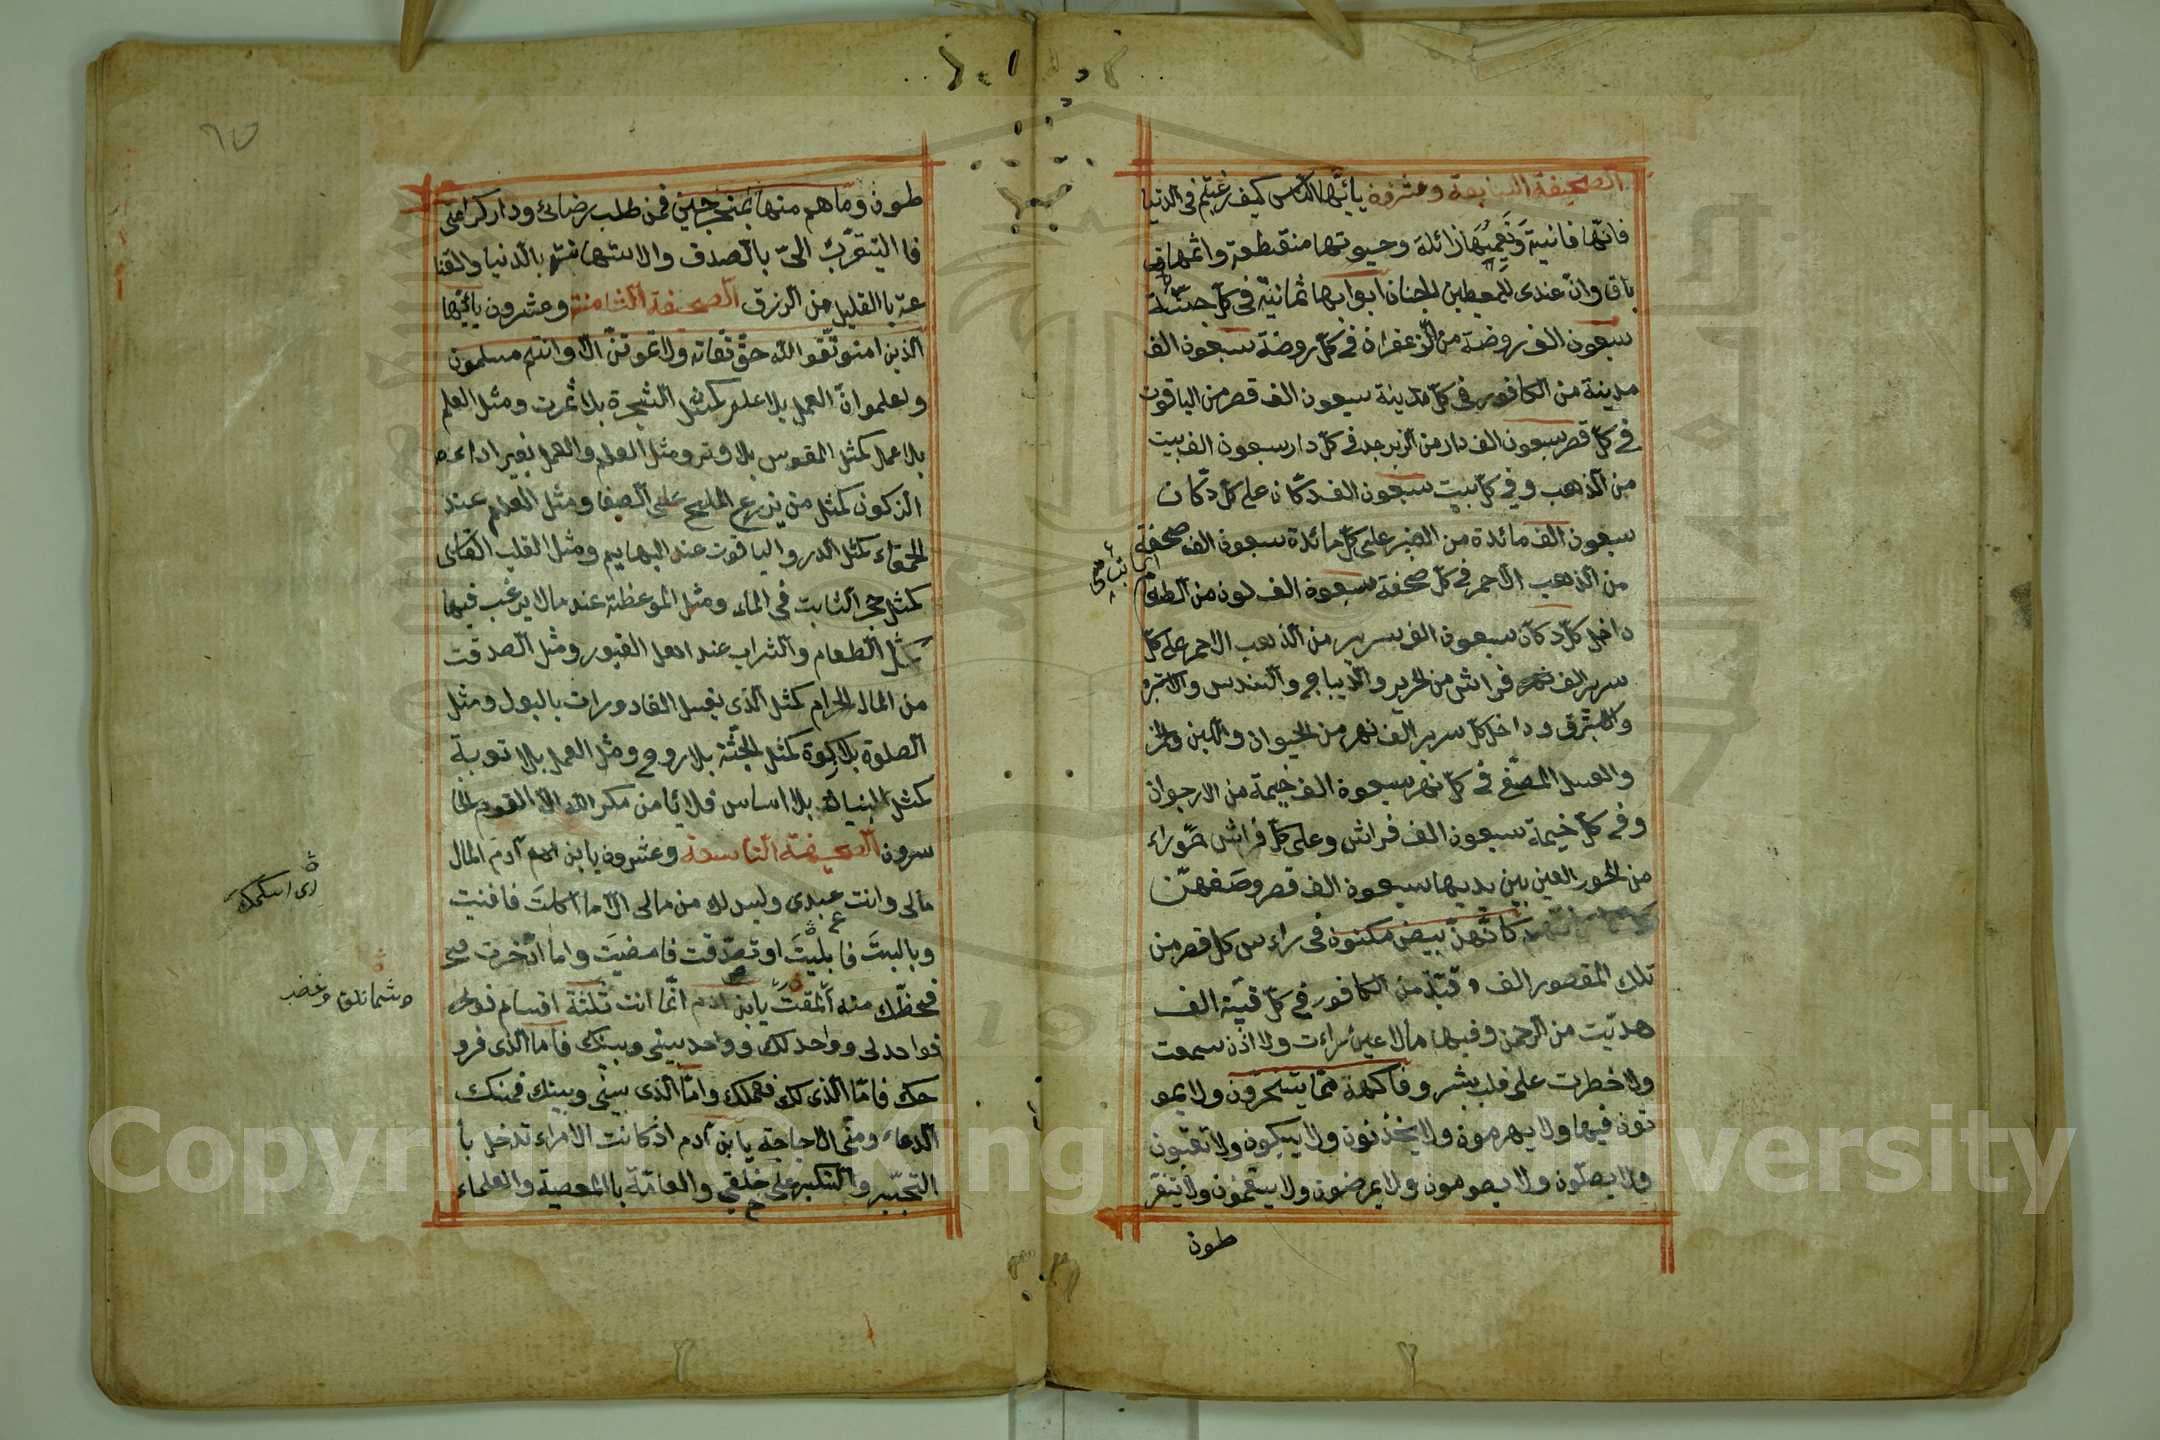 الصحيفة السابعة وعشرون يا أيّها النّاس كيف رغبتم فى الدنيا
فانّها فانية ونعيمها زائلة وحيوتها منقطعة
باق وانّ عندى للمطيعين الجنان ابوابها ثمانيّة فى كلّ جنّة
سبعون الف روضة من الزعفران فى كلّ روضة سبعون الف
مدينة من الكافور فى كلّ مدينة سبعون الف قصر من الياقوت
فى كلّ قصر سبعون الف دار من الزبرجد فى كلّ دار سبعون الف بيت
من الذهب وفى كلّ بيت سبعون الف دكّان على كلّ دكّان
سبعون الف مائدة من العنبر على كلّ مائدة سبعون الف صحفة
من الذهب الاحمر فى كلّ صحفة سبعون الف لون من الطعام
داخل كلّ دكّان سبعون الف سرير من الذهب الاحمر على كلّ
سرير الف فراش من الحرير والدّيباج والسّندس
وداخل كلّ سرير الف نهر من الحيوان واللبن والخمر
والعسل المصفّى فى كلّ نهر سبعون الف خيمة من الارجوان
وفى كلّ خيمة سبعون الف فراش وعلى كلّ فراش حوراء
من الحور العين بين يديها سبعون الف قصر وصفهنّ
كانّهنّ بيض مكنون فى راءس كل قصر من
تلك المقصور الف قبّة من الكافور فى كلّ قبّة الف
هديّت من الرحمن وفيها مالا عين راءت ولا اذن سمعت
ولا خطرت على قلب بشر وفاكهة ممّا يتخيّرون ولا يمو
تون فيها ولا يهرمون ولا يحزنون ولا يبكون ولا تعبون
ولا يصلّون ولا يصومون ولا يمرضون ولا يسقمون ولا يتغو
طون
طون وما هم منها بمخرجين فمن طلب رضائى ودار كرامتى
فاليتقرّب الىّ بالصدق والاستهانة بالدنيا والقنا
عة باالقليل من الرزق الصحيفة الثامنة وعشرون يا أيّها
الذين امنو تّقوا الله حقّ تقاته ولا تموتنّ الّا وانتم مسلمون
ولعلموا انّ العمل بلا علم كمثل الشجرة بلا ثمرت ومثل العلم
بلا عمل كمثل القوس بلا وتر ومثل العلم والعمل بغير اداء
الزكوة كمثل من يزرع الملح على الصفا ومثل العلم عند
الحمقاء كمثل الدر والياقوت عند البهايم ومثل القلب القاسى
كمثل حجر الثابت فى الماء ومثل الموعظة عند مالا يرغب فيها
كمثل الطعام والشراب عند اهل القبور ومثل الصدقت
من المال الحرام كمثل الذى يغسل القادورات بالبول ومثل
الصلوة بلا زكوة كمثل الجثّة بلا روح ومثل العمل بلا توبة
كمثل البنيان بلا اساس فلا يامن مكر الله الّا القوم الخا
سرون الصحيفة التاسعة وعشرون يا بن ادم المال
مالى وانت عبدى وليس لك من مالى الّا ما اكلت فافنيت
وبالبست فابليت او تصدّقت فامضيت واما ادّخرت
فحظّك منه المقت يا بن ادم انّما انت ثلثة اقسام
فواحد لى وواحد لك وواحد بينى وبينك فامّا الذى فرو
حك فامّا الذى لك فعملك وامّا الذى بينى وبينك فمنك
الدعاء ومنّى الاجابة يا بن آدم اذ كانت الامراء تدخل با
التجبّر والتكبر على خلقى والعامّة باالمعصية والعلماء